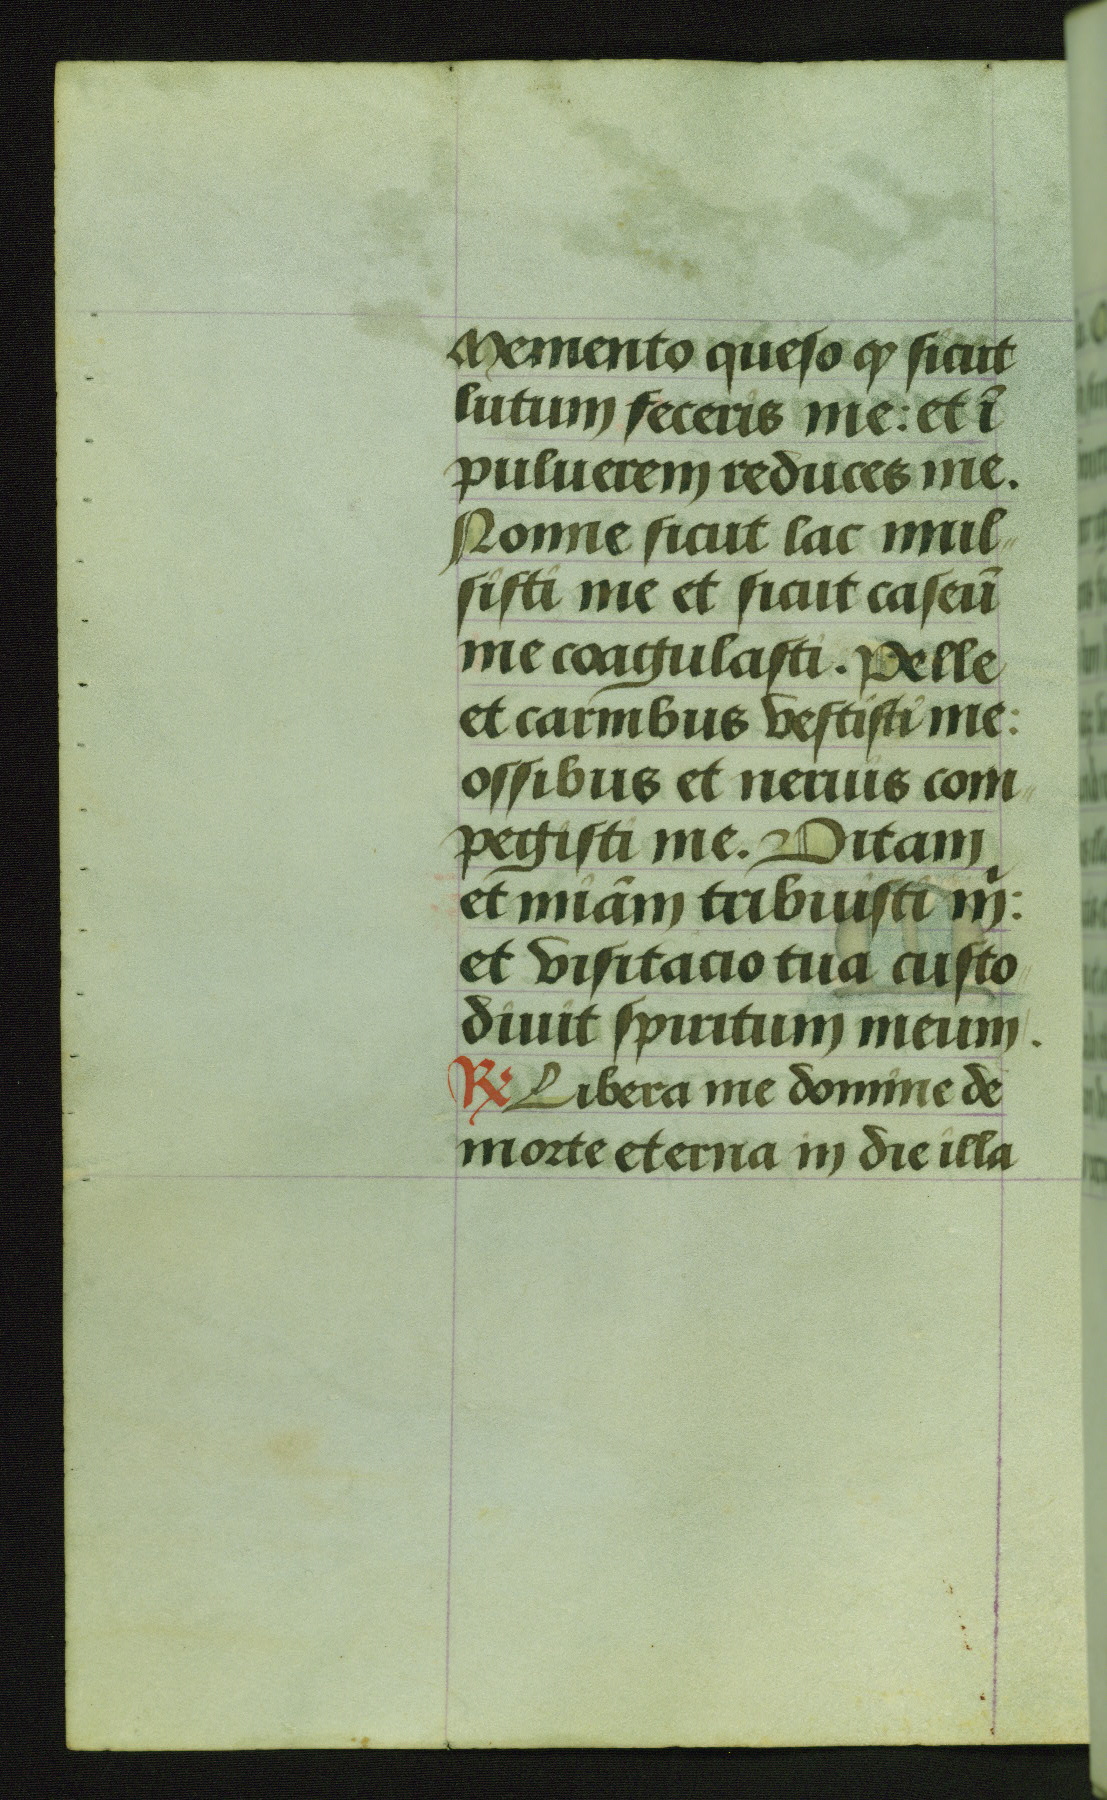 Memento queso ꝙ sicut
lutum feceris me: et ī
puluerem reduces me.
Nonne sicut lac mul„
sisti me et sicut caseū
me coagulasti. Pelle
et carnibus vestisti me:
ossibus et neruis com„
pegisti me. Vitam
et miām tribuisti m̄:
et visitacio tua custo„
diuit spiritum meum.
℟ Libera me domine de
morte eterna in die illa